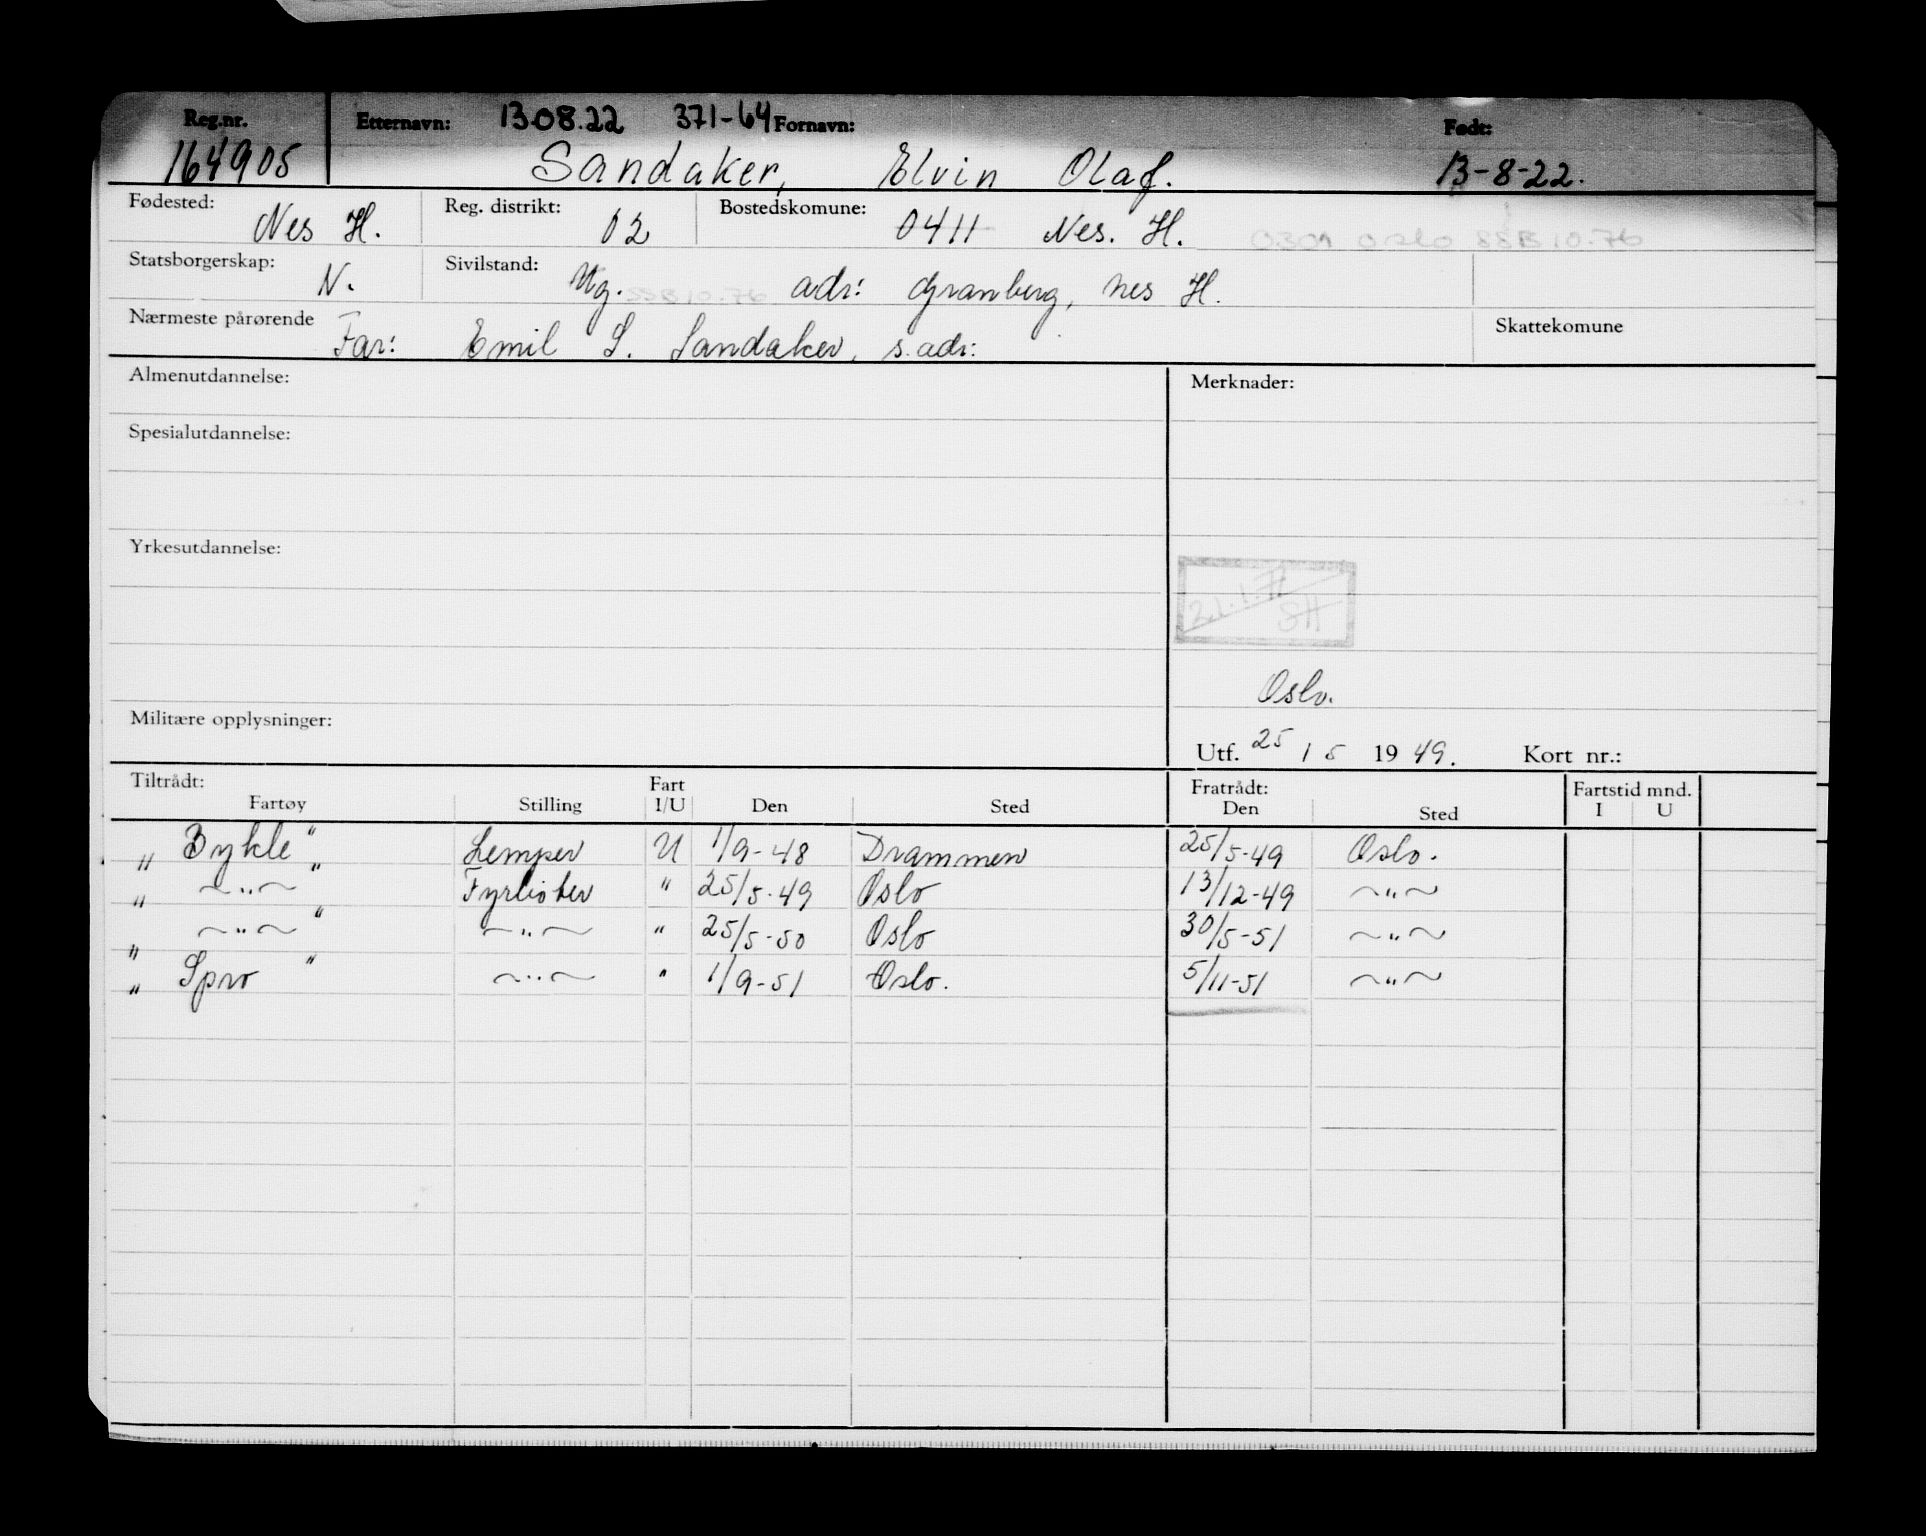 Reg.nr. Etternavn: 13.08.22 371-64 Fornavn: Født:
164905 Sandaker, Elvin Olaf. 13-8-22.
Fødested: Nes H. Reg. distrikt: 02 Bostedskomune: 0411 Nes. H. 0301 Oslo SSB 10.76
Statsborgerskap: N. Sivilstand: Ug. SSB 10.76 adr: Granberg, Nes H.
Nærmeste pårørende Far: Emil S. Sandaker, s. adr: Skattekomune
Almenutdannelse: Merknader:
Spesialutdannelse:
Yrkesutdannelse:
21.1.77
SH
Oslo.
Militære opplysninger:
Utf. 25 / 5 1949. Kort nr.:
Tiltrådt: Fart Fratrådt: Fartstid mnd.
Fartøy Stilling I/U Den Sted Den Sted I U
" Bykle " Lemper U 1/9-48 Drammen 25/5-49 Oslo.
" ~"~ Fyrbøter " 25/5-49 Oslo 13/12-49 ~"~
" ~"~ " ~"~ " 25/5-50 Oslo 30/5-51 ~"~
" Spro " ~"~ " 1/9-51 Oslo. 5/11-51 ~"~